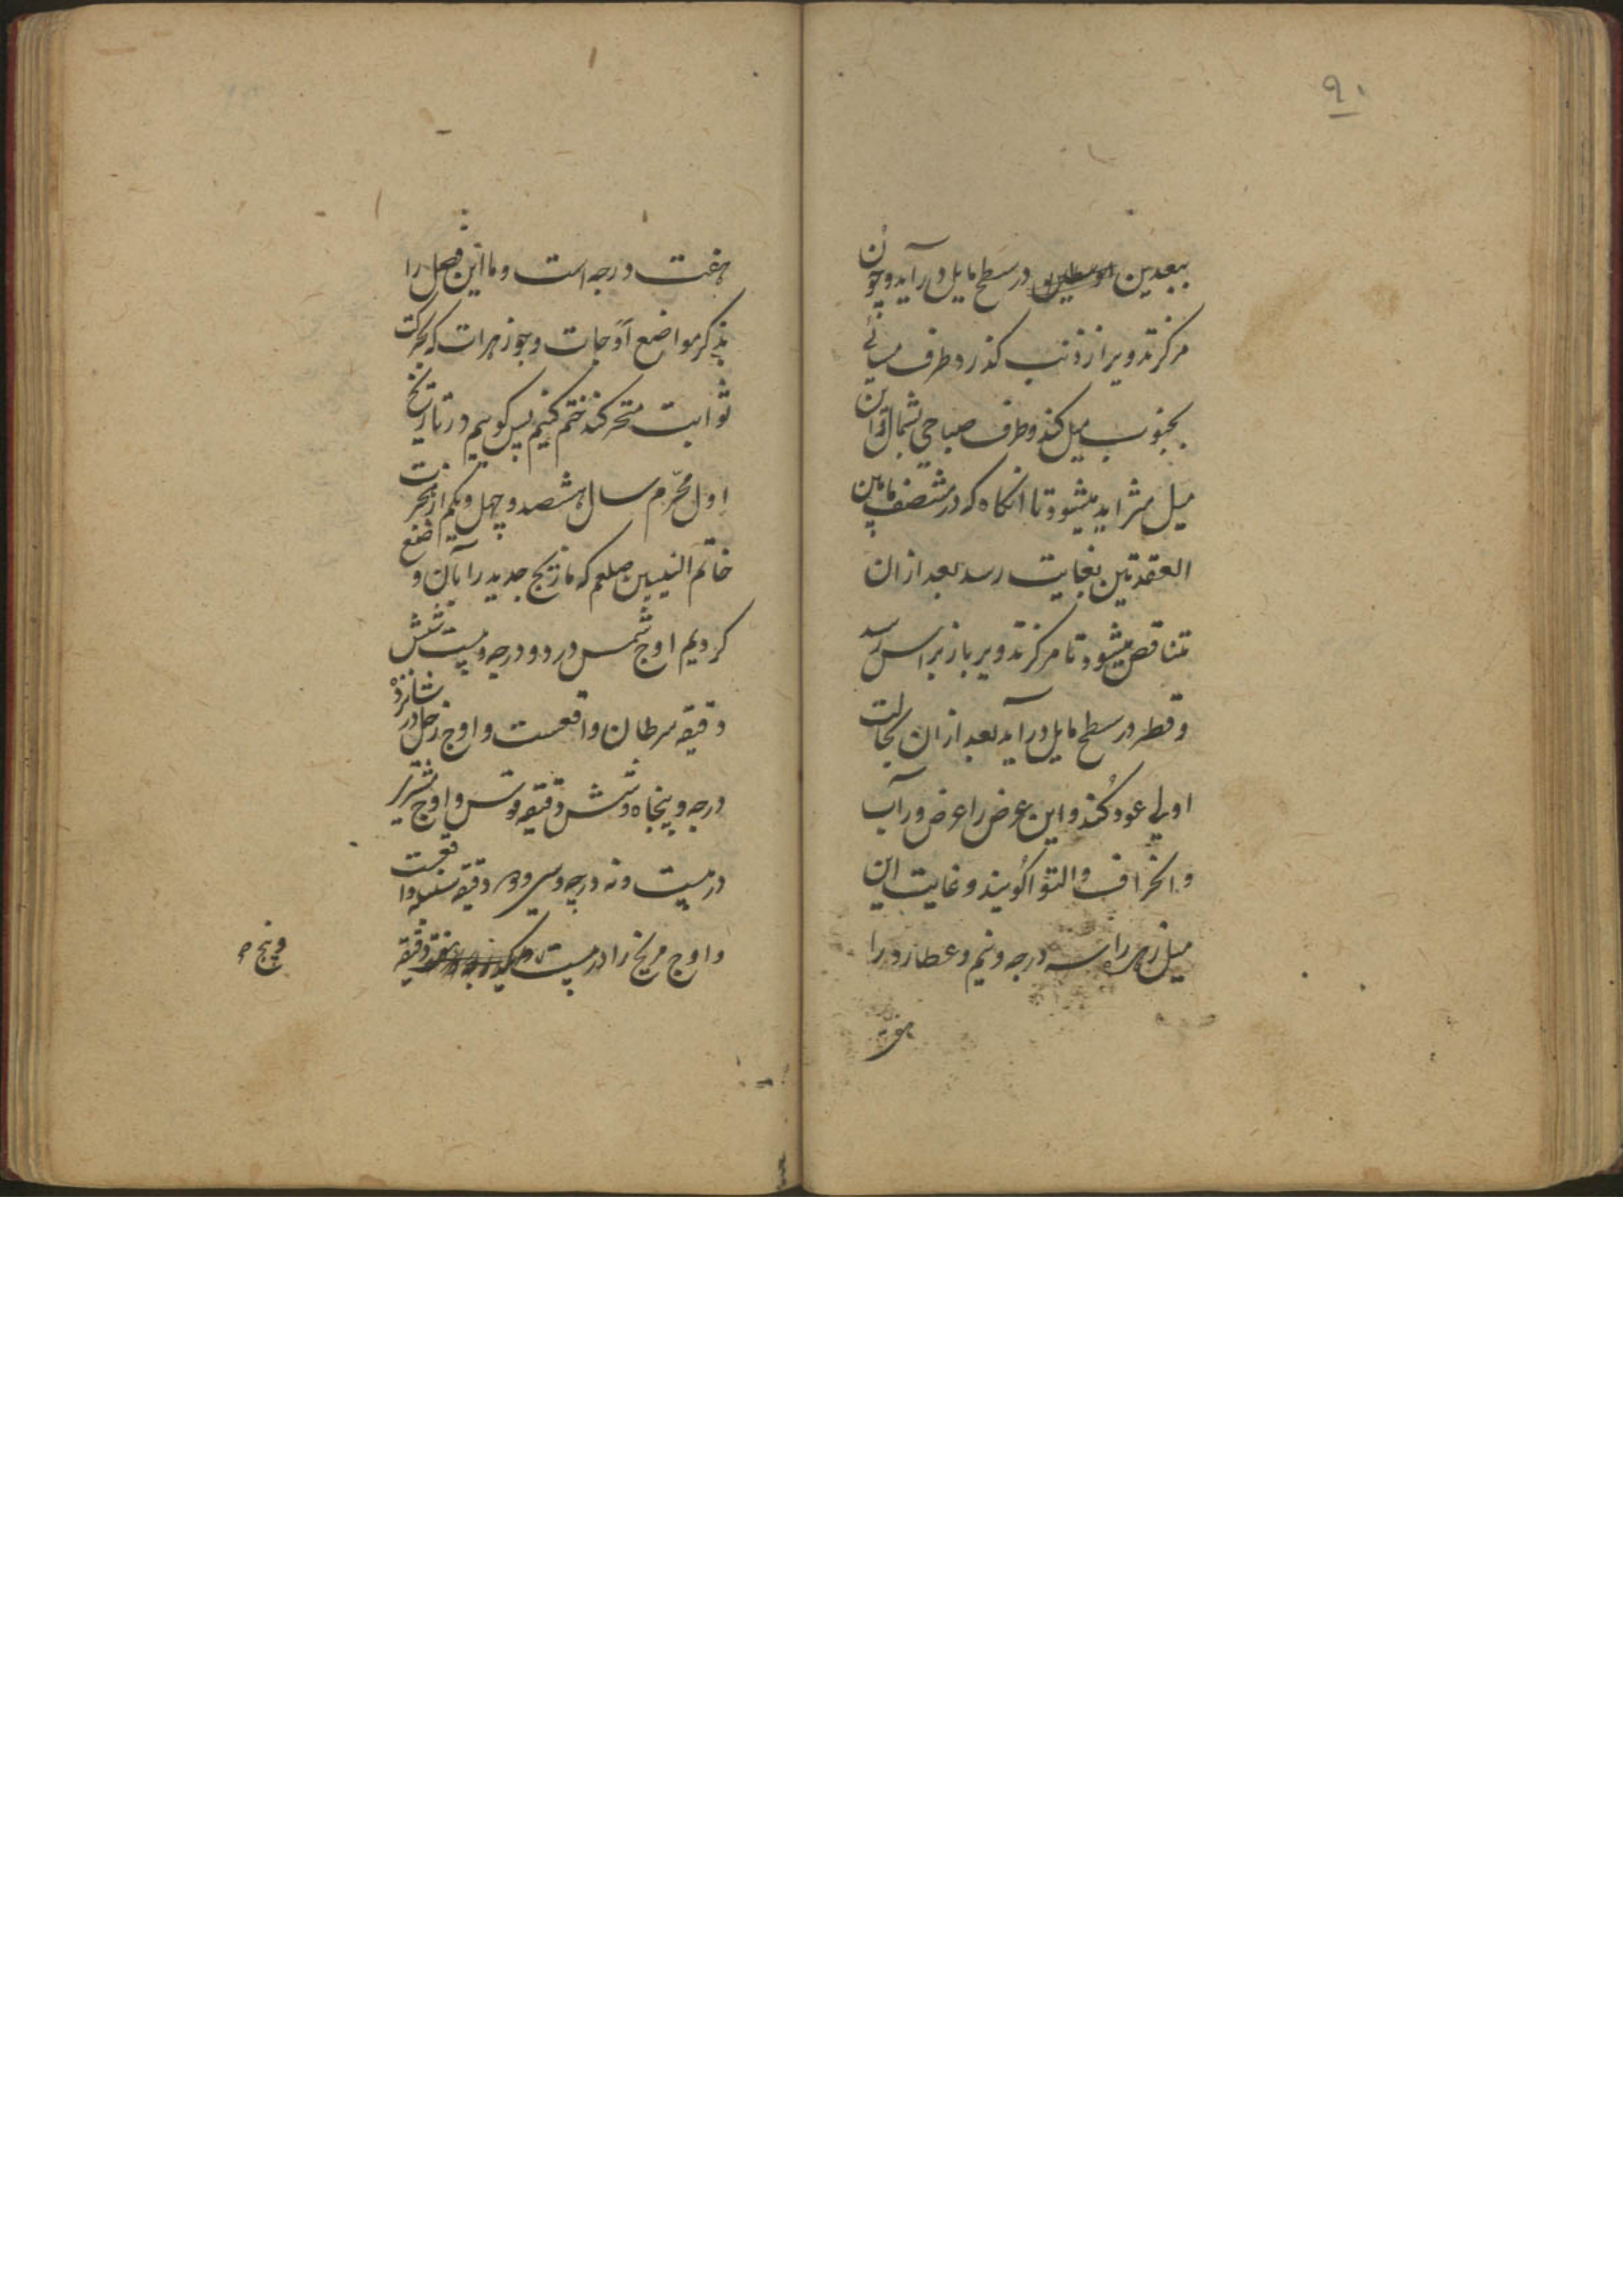 ۹۰
ببعدین اوسطین در سطح مایل در آید و چون
مرکز تدویر از ذنب کذرد طرف مسائی
بجنوب میل کند و طرف صباحی بشمال و این
میل متزاید میشود تا انکاه که در منتصف مابین
العقدتین بغایت رسد بعد از ان
متناقص میشود تا مرکز تدویر باز براس رسد
و قطر در سطح مایل در آید بعد از ان بحالت
اولی عود کند و این عرض را عرض وراب
و انحراف و التوا کویند و غایت این
میل زهره را سه درجه و نیم و عطارد را
هفت
هفت درجه است و ما این فصل را
بذکر مواضع اوجات و جوزهرات که بحرکت
ثوابت متحرکند ختم کنیم پس کوییم در تاریخ
اول محرّم سال هشصد و چهل و یکم از هجرت
خاتم النبیین صلعم که ما زیج جدید را بآن وضع
کردیم اوج شمس در دو درجه و بیست شش
دقیقه سرطان واقعست و اوج زحل در شانزده
درجه و پنجاه و شش دقیقه قوس و اوج مشتری
در بیست و نه درجه و سی و دو دقیقه سنبله واقعست
و اوج مریخ را در بیست دقیقه
و پنج